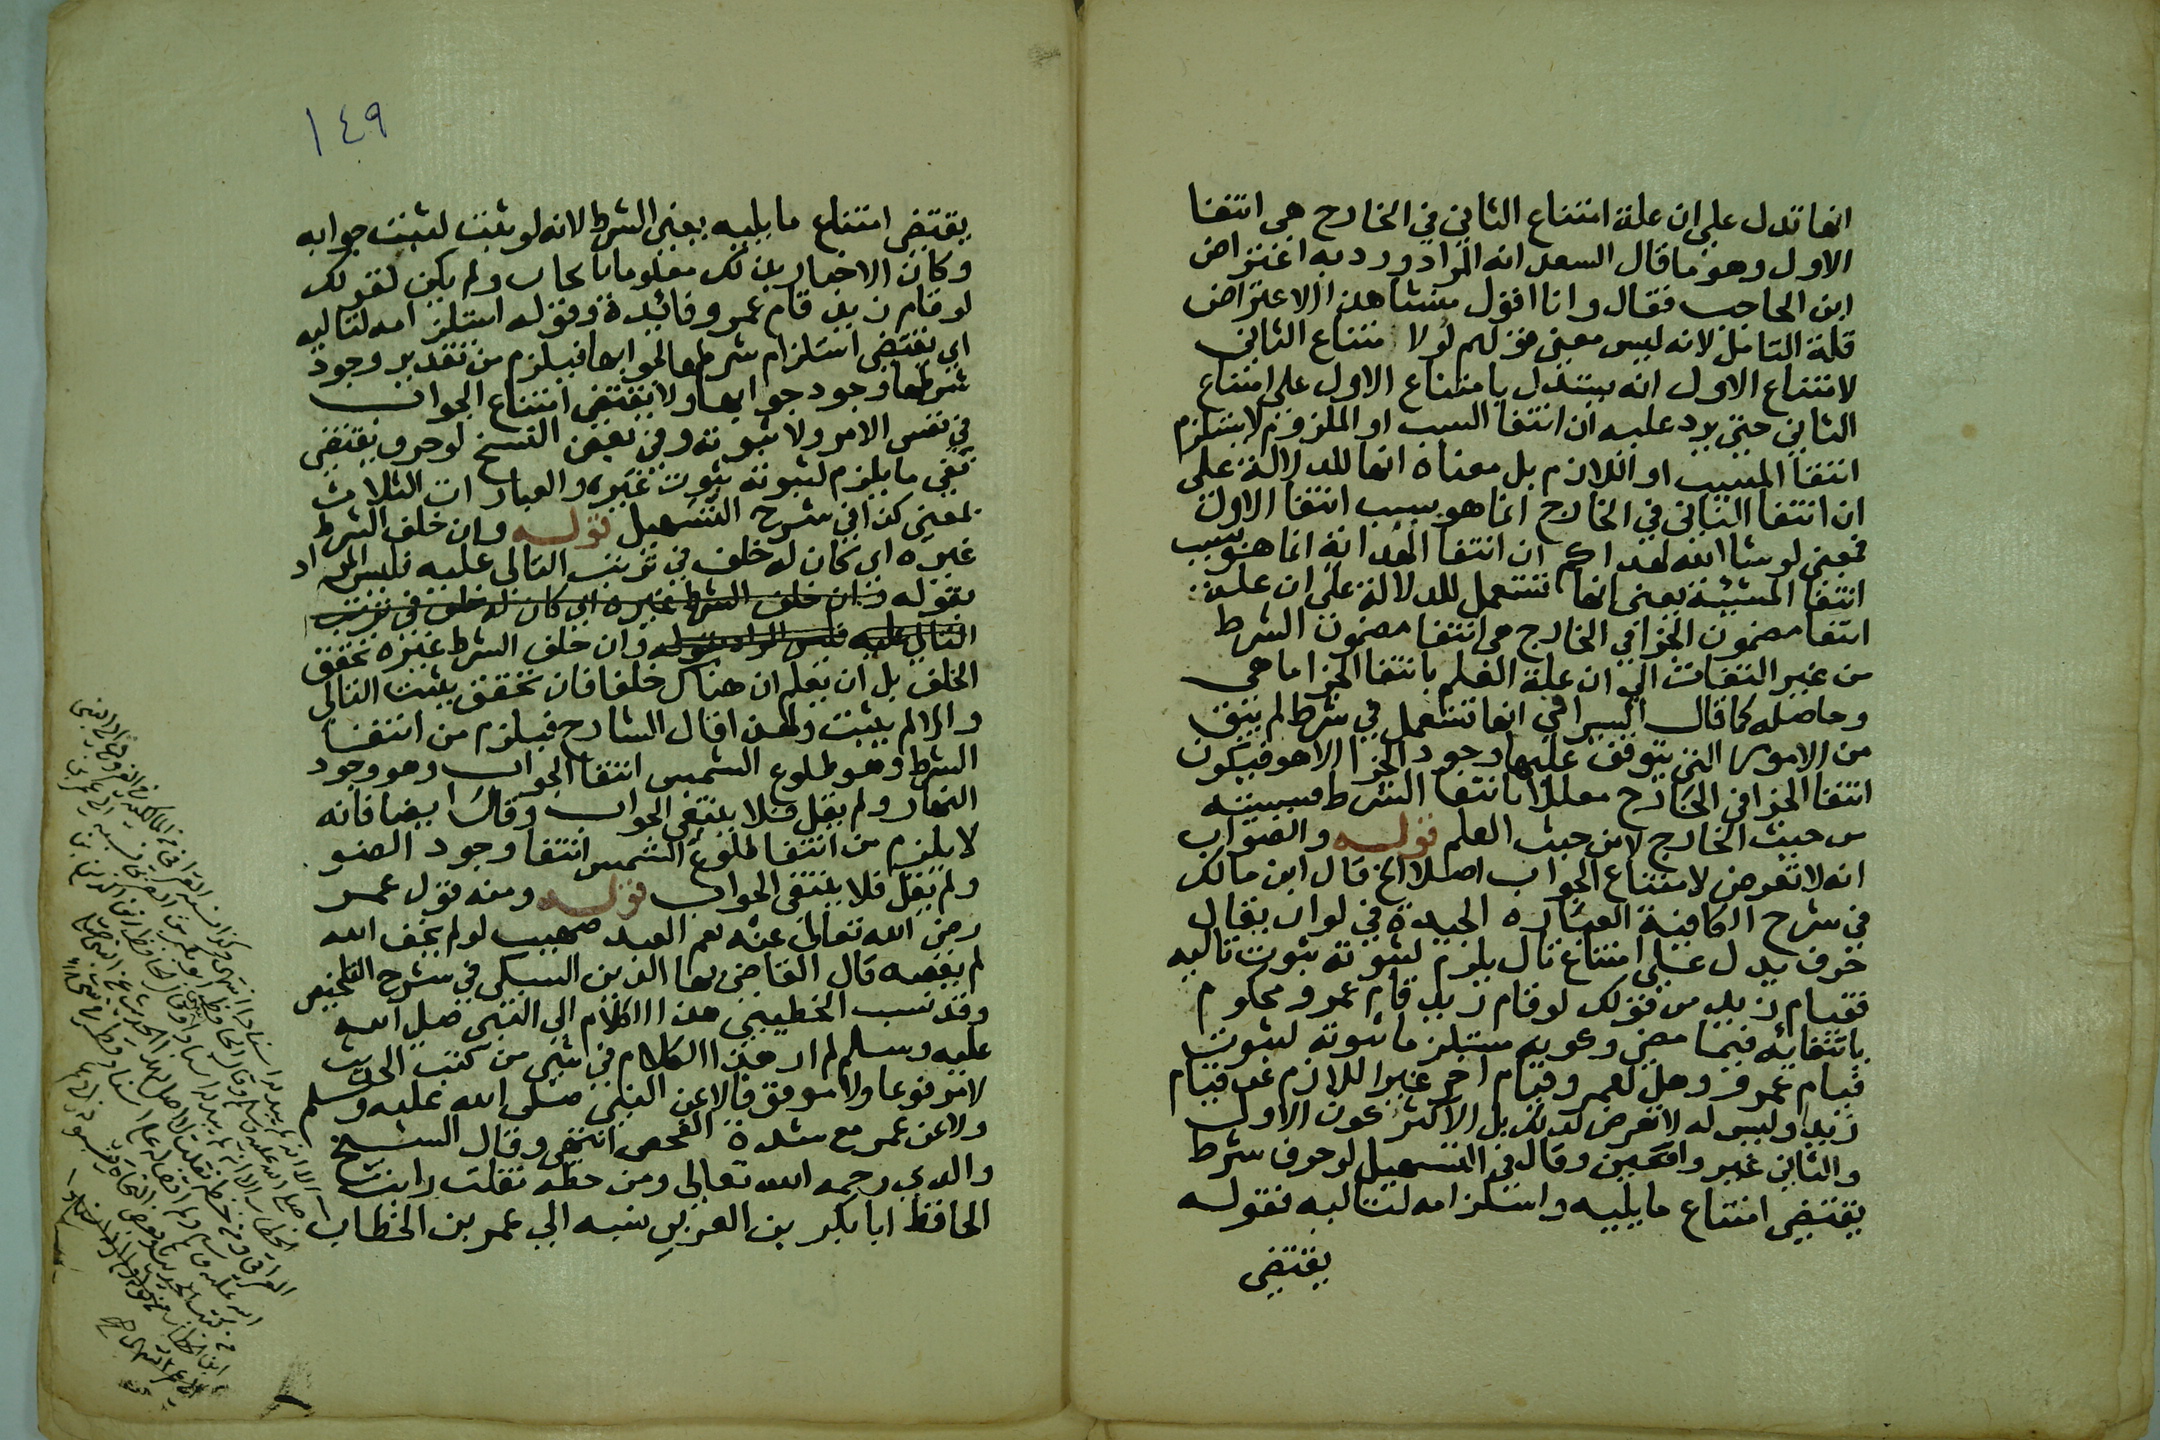 انها تدل على ان علة امتناع الثاني في الخارج هى انتفا
الاول وهو ما قال السعد انه المراد ورد به اعتراض
ابن الحاجب فقال وانا اقول منشا هذا الاعتراض
قلة التامل لانه ليس معنى قولهم لو لامتناع الثانى
لامتناع الاول انه يستدل بامتناع الاول على امتناع
الثاني حتى يرد عليه ان انتفا السبب او الملزوم لا يستلزم
انتفا المسبب او اللازم بل معناه انها للدلالة على
ان انتفا الثانى في الخارج انما هو بسبب انتفا الاول
فمعنى لو شا الله لهداكم ان انتفا الهداية انما هو بسبب
انتفا المشيئة يعنى انها تستعمل للدلالة على ان علة
انتفا مضمون الجزا في الخارج هى انتفا مضمون الشرط
من غير التفات الى ان علة العلم بانتفا الجزا ما هى
وحاصله كما قال السيرافي انها تستعمل في شرط لم يبق
من الامور التى يتوقف عليها وجود الجزا الا هو فيكون
انتفا الجزا في الخارج معللا بانتفا الشرط
من حيث الخارج لا من حيث العلم قوله والصواب
انه لا تعرض لامتناع الجواب اصلا الخ قال ابن مالك
في شرح الكافية العبارة الجيدة في لو ان يقال
حرف يدل على امتناع تال يلزم لثبوته ثبوت تاليه
فقيام زيد من قولك لو قام زيد قام عمرو محكوم
بانتفائه فيما مضى وكونه مستلزما ثبوته لثبوت
قيام عمرو وهل لعمرو قيام اخر غير اللازم عن قيام
زيد او ليس له لا تعرض لذلك بل الاكثر كون الاول
والثاني غير واقعين وقال في التسهيل لو حرف شرط
يقتضي امتناع ما يليه واستلزامه لتاليه فقوله
يقتضى
١٤٩
يقتضى امتناع ما يليه يعنى الشرط لانه لو ثبت لثبت جوابه
وكان الاخبار بذلك معلوما بايجاب ولم يكن لقولك
لو قام زيد قام عمرو فائدة وقوله استلزامه لتاليه
اي يقتضى استلزام شرطها لجوابها فيلزم من تقدير وجود
شرطها وجود جوابها ولا يقتضى امتناع الجواب
في نفس الامر ولا ثبوته وفي بعض النسخ لو حرف يقتضى
نفي ما يلزم لثبوته ثبوت غيره والعبارات الثلاث
بمعنى كذا في شرح التسهيل قوله وان خلف الشرط
غيره اي كان له خلف في ترتب التالى عليه فليس المراد
بقوله وان خلف الشرط غيره اي كان له خلف في ترتب
التالى عليه فليس المراد بقوله وان خلف الشرط غيره تحقق
الخلف بل ان يعلم ان هناك خلفا فان تحقق يثبت التالى
والا لم يثبت ولهذا قال الشارح فيلزم من انتفا
الشرط وهو طلوع الشمس انتفا الجواب وهو وجود
النهار ولم يقل فلا ينتفى الجواب وقال ايضا فانه
لا يلزم من انتفا طلوع الشمس انتفا وجود الضو
ولم يقل فلا ينتفى الجواب قوله ومنه قول عمر
رضى الله تعالى عنه نعم العبد صهيب لو لم يخف الله
لم يعصه قال القاضى بها الدين السبكى في شرح التلخيص
وقد نسب الخطيبى هذا الكلام الى النبى صلى الله
عليه وسلم لم ار هذا الكلام في شى من كتب الحديث
لا مرفوعا ولا موقوفا لا عن النبى صلى الله عليه وسلم
ولا عن عمر مع شدة الفحص انتهى وقال الشيخ
والدي رحمه الله تعالى ومن خطه نقلت رايت
الحافظ ابا بكر بن العربى نسبه الى عمر بن الخطاب